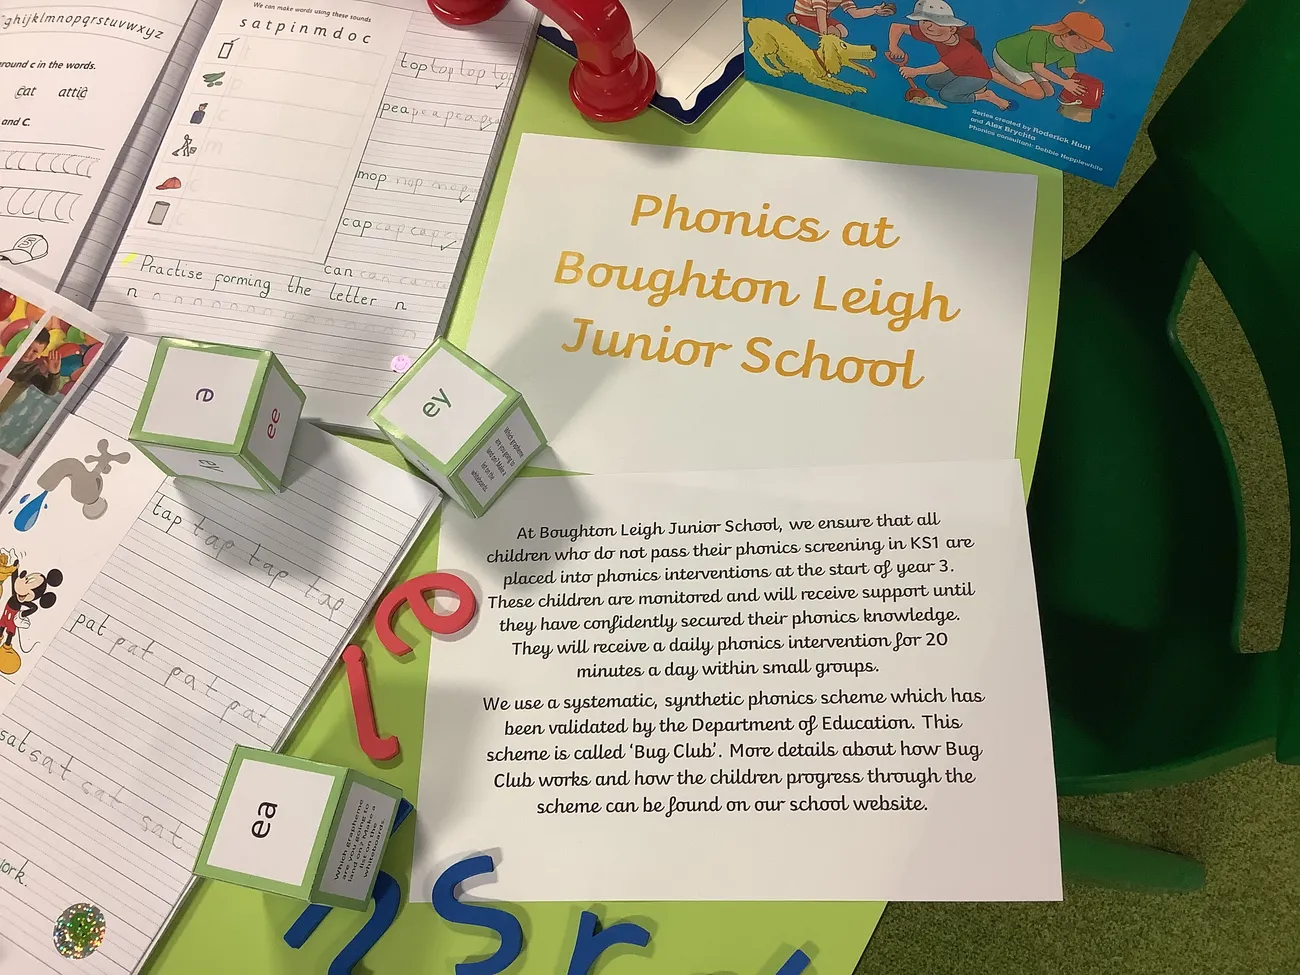 ghijklmnopqrstuvwxyz
round c in the words.
cat attic
and C.
We can make words using these sounds
s a t p i n m d o c
top top top top
pea pea pea pea
m
mop mop mop
cap cap cap
c
can can can
Practise forming the letter n
n n n n n n n n n n n
Series created by Roderick Hunt
and Alex Brychta
Phonics consultant: Debbie Hepplewhite
Phonics at
Boughton Leigh
Junior School
e
ee
ey
ey
Which grapheme
are you going to
land on? Make a
list on the
whiteboards.
tap tap tap tap
pat pat pat pat
sat sat sat
sat
work.
ea
Which grapheme
are you going to
land on? Make a
list on the
whiteboards.
At Boughton Leigh Junior School, we ensure that all
children who do not pass their phonics screening in KS1 are
placed into phonics interventions at the start of year 3.
These children are monitored and will receive support until
they have confidently secured their phonics knowledge.
They will receive a daily phonics intervention for 20
minutes a day within small groups.
We use a systematic, synthetic phonics scheme which has
been validated by the Department of Education. This
scheme is called ‘Bug Club’. More details about how Bug
Club works and how the children progress through the
scheme can be found on our school website.
e
l
n s r